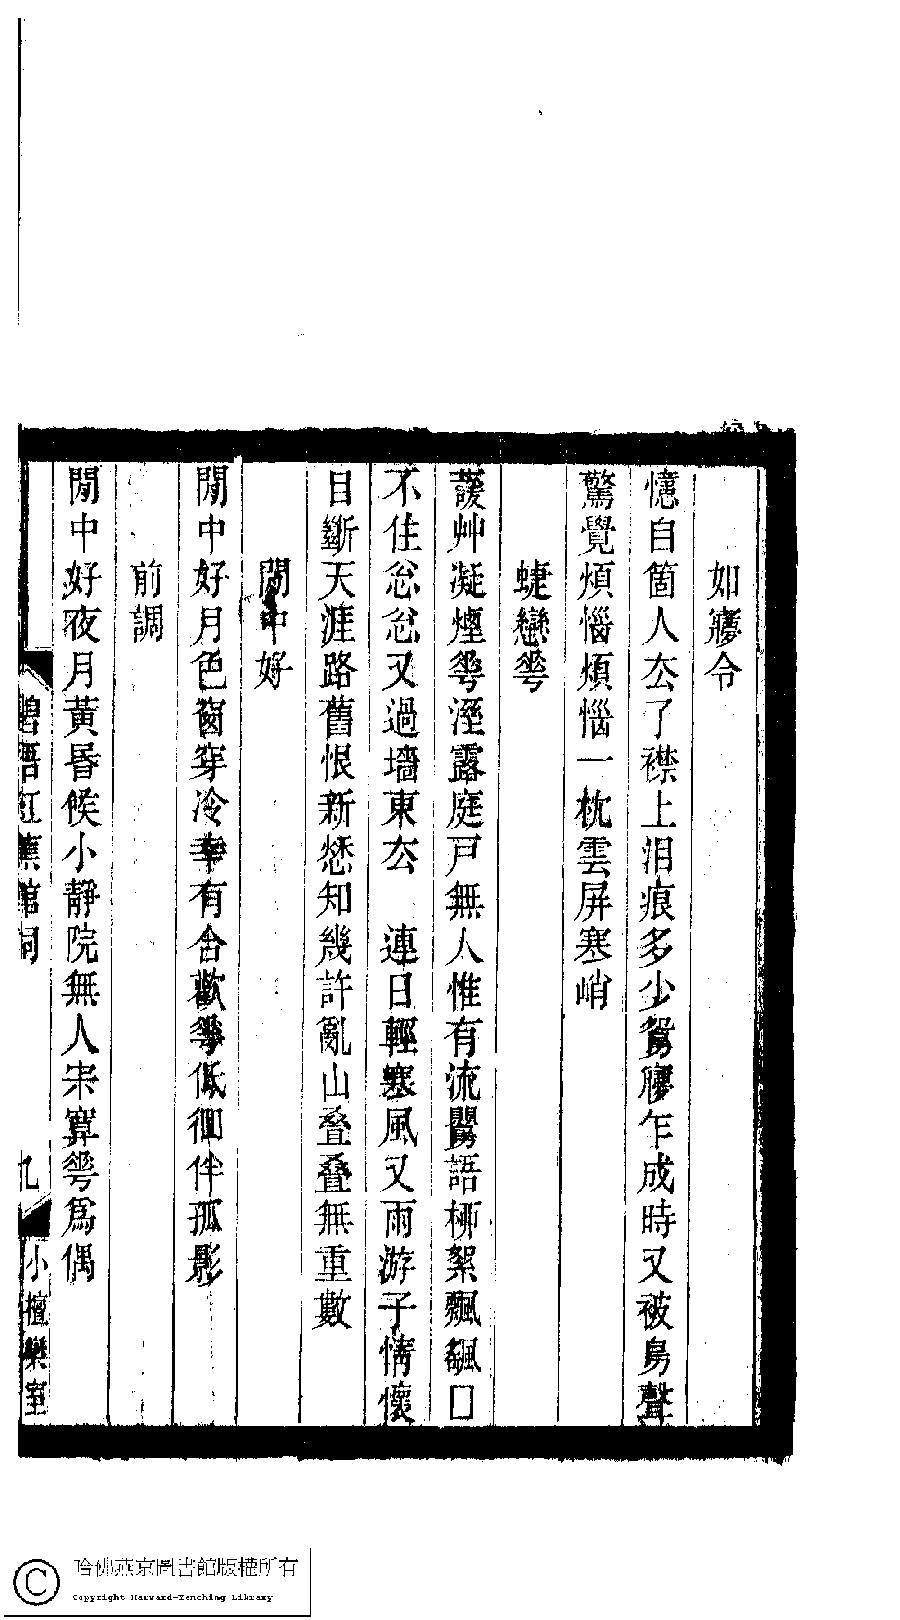 如㝱令
憶自箇人厺了襟上泪痕多少鴛㝱乍成時又被鳥聲
驚覺煩惱煩惱一枕雲屏寒峭
蜨戀蕐
護艸凝煙蕐溼露庭戶無人惟有流鶯語桺絮飄颻□
不住忩忩又過墻東厺　連日輕寒風又雨游子情懷
目斷天涯路舊恨新愁知幾許亂山疊疊無重數
閒中好
閒中好月色窗穿冷幸有合歡蕐低徊伴孤影
前調
閒中好夜月黃昏候小靜院無人宋算蕐爲偶
碧梧紅蕉館詞
九
小檀欒室
哈佛燕京圖書館版權所有
Copyright Harvard-Yenching Library